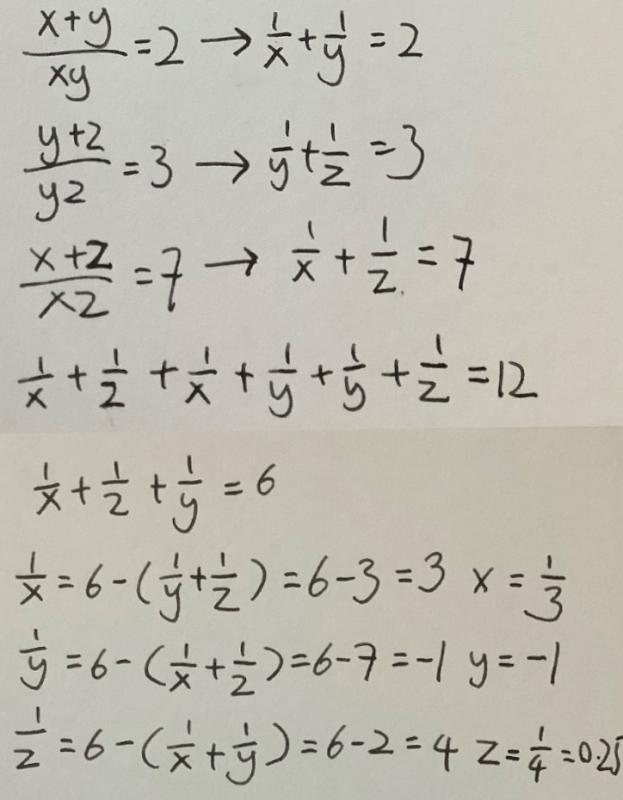 (x+y)/(xy) = 2 → 1/x + 1/y = 2
(y+z)/(yz) = 3 → 1/y + 1/z = 3
(x+z)/(xz) = 7 → 1/x + 1/z = 7
1/x + 1/z + 1/x + 1/y + 1/y + 1/z = 12
1/x + 1/z + 1/y = 6
1/x = 6 - (1/y + 1/z) = 6 - 3 = 3 x = 1/3
1/y = 6 - (1/x + 1/z) = 6 - 7 = -1 y = -1
1/z = 6 - (1/x + 1/y) = 6 - 2 = 4 z = 1/4 = 0.25